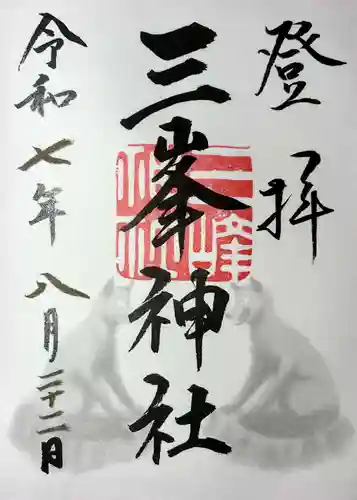 登拝
三峯神社
令和七年八月二十二日